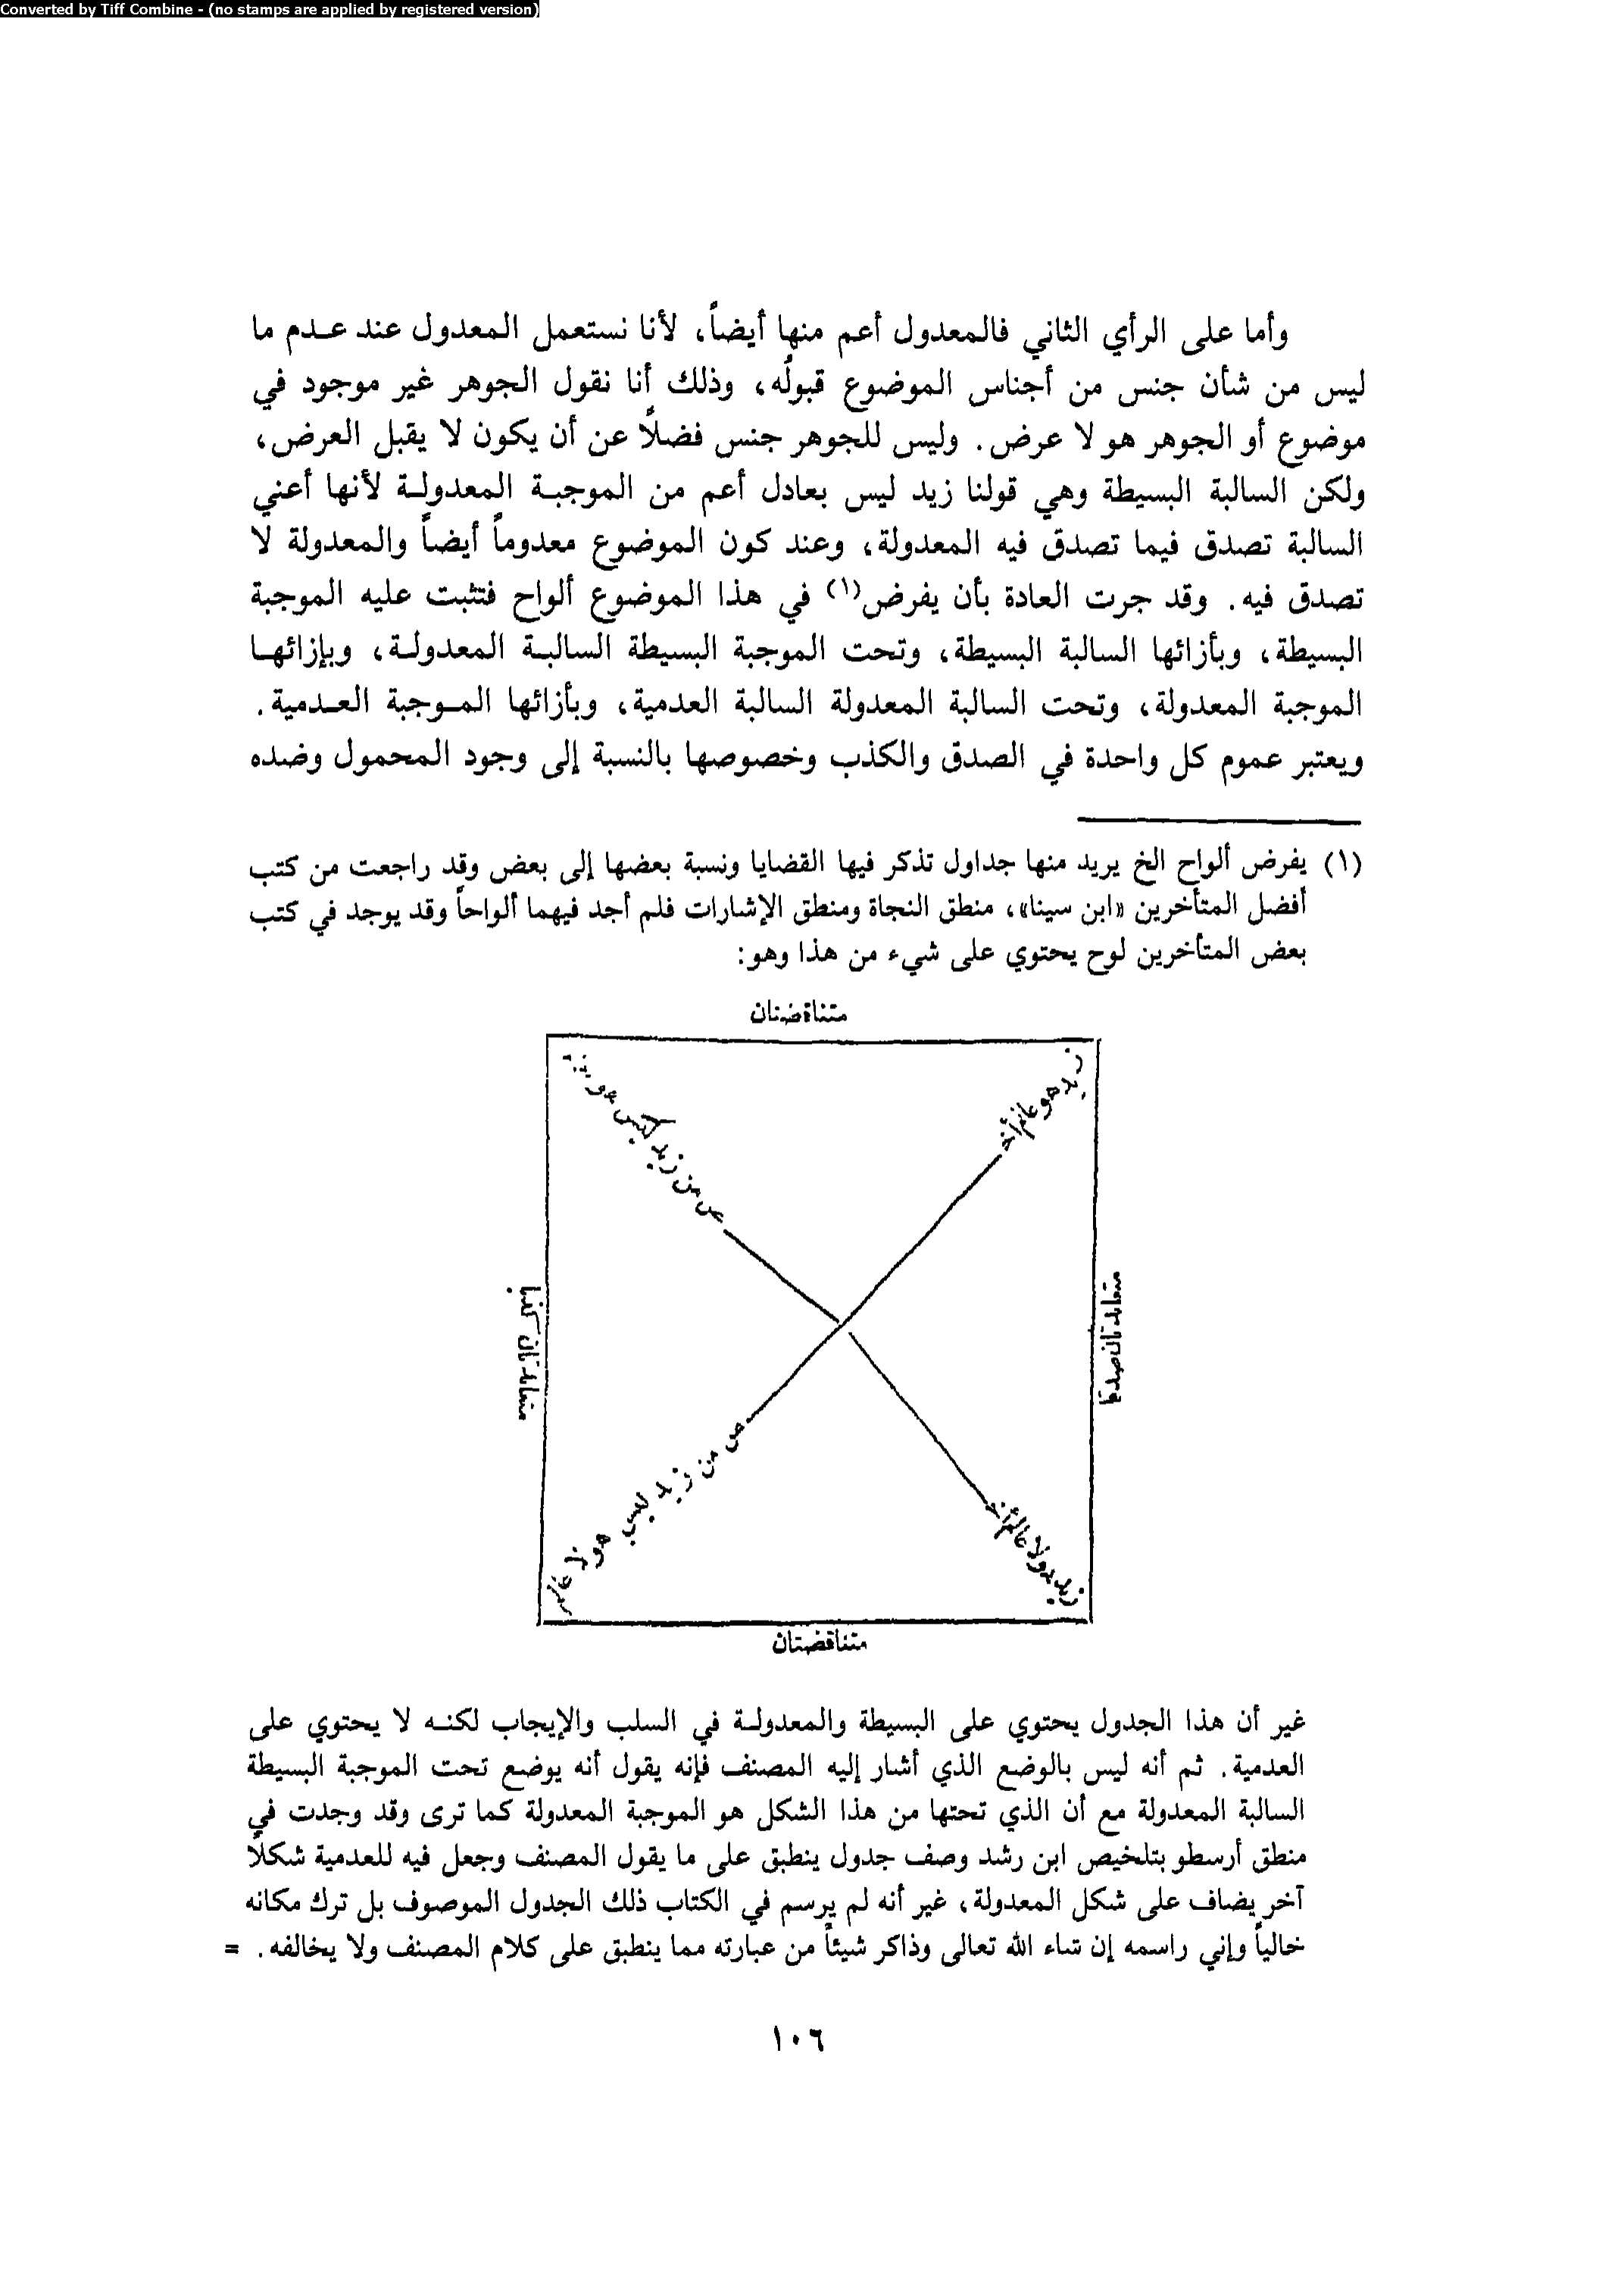 Converted by Tiff Combine - (no stamps are applied by registered version)
وأما على الرأي الثاني فالمعدول أعم منها أيضاً، لأنا نستعمل المعدول عند عـدم ما
ليس من شأن جنس من أجناس الموضوع قبولُه، وذلك أنا نقول الجوهر غير موجود في
موضوع أو الجوهر هو لا عرض. وليس للجوهر جنس فضلاً عن أن يكون لا يقبل العرض،
ولكن السالبة البسيطة وهي قولنا زيد ليس بعادل أعم من الموجبـة المعدولـة لأنها أعني
السالبة تصدق فيما تصدق فيه المعدولة، وعند كون الموضوع معدوماً أيضاً والمعدولة لا
تصدق فيه. وقد جرت العادة بأن يفرض(١) في هذا الموضوع ألواح فتثبت عليه الموجبة
البسيطة، وبأزائها السالبة البسيطة، وتحت الموجبة البسيطة السالبـة المعدولـة، وبإزائهـا
الموجبة المعدولة، وتحت السالبة المعدولة السالبة العدمية، وبأزائها المـوجبة العـدمية.
ويعتبر عموم كل واحدة في الصدق والكذب وخصوصها بالنسبة إلى وجود المحمول وضده
(١) يفرض ألواح الخ يريد منها جداول تذكر فيها القضايا ونسبة بعضها إلى بعض وقد راجعت من كتب
أفضل المتأخرين «ابن سينا»، منطق النجاة ومنطق الإشارات فلم أجد فيهما ألواحاً وقد يوجد في كتب
بعض المتأخرين لوح يحتوي على شيء من هذا وهو:
متناقضتان
زيد هو عالم
زيد ليس هو
متعاندتان صدقا
متعاندتان كذبا
من زيد ليس هو لا عالم
زيد هو لا عالم
متناقضتان
غير أن هذا الجدول يحتوي على البسيطة والمعدولـة في السلب والإيجاب لكنـه لا يحتوي على
العدمية. ثم أنه ليس بالوضع الذي أشار إليه المصنف فإنه يقول أنه يوضع تحت الموجبة البسيطة
السالبة المعدولة مع أن الذي تحتها من هذا الشكل هو الموجبة المعدولة كما ترى وقد وجدت في
منطق أرسطو بتلخيص ابن رشد وصف جدول ينطبق على ما يقول المصنف وجعل فيه للعدمية شكلاً
آخر يضاف على شكل المعدولة، غير أنه لم يرسم في الكتاب ذلك الجدول الموصوف بل ترك مكانه
خالياً وإني راسمه إن شاء الله تعالى وذاكر شيئاً من عبارته مما ينطبق على كلام المصنف ولا يخالفه. =
١٠٦